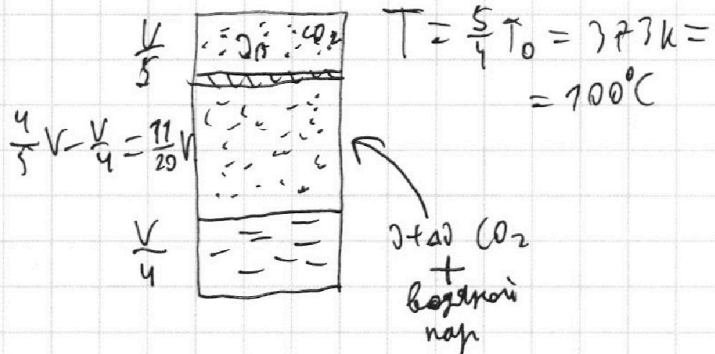 V/5
CO₂
T = 5/4 T₀ = 373K =
= 100°C
4/5 V - V/4 = 11/20 V
V/4
ν+Δν CO₂
+
водяной
пар